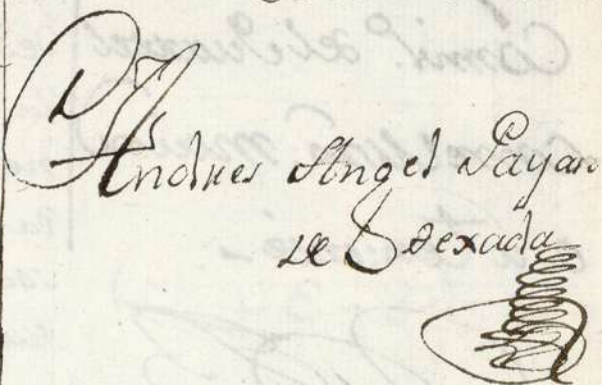 Andres Angel Payan
de Texada